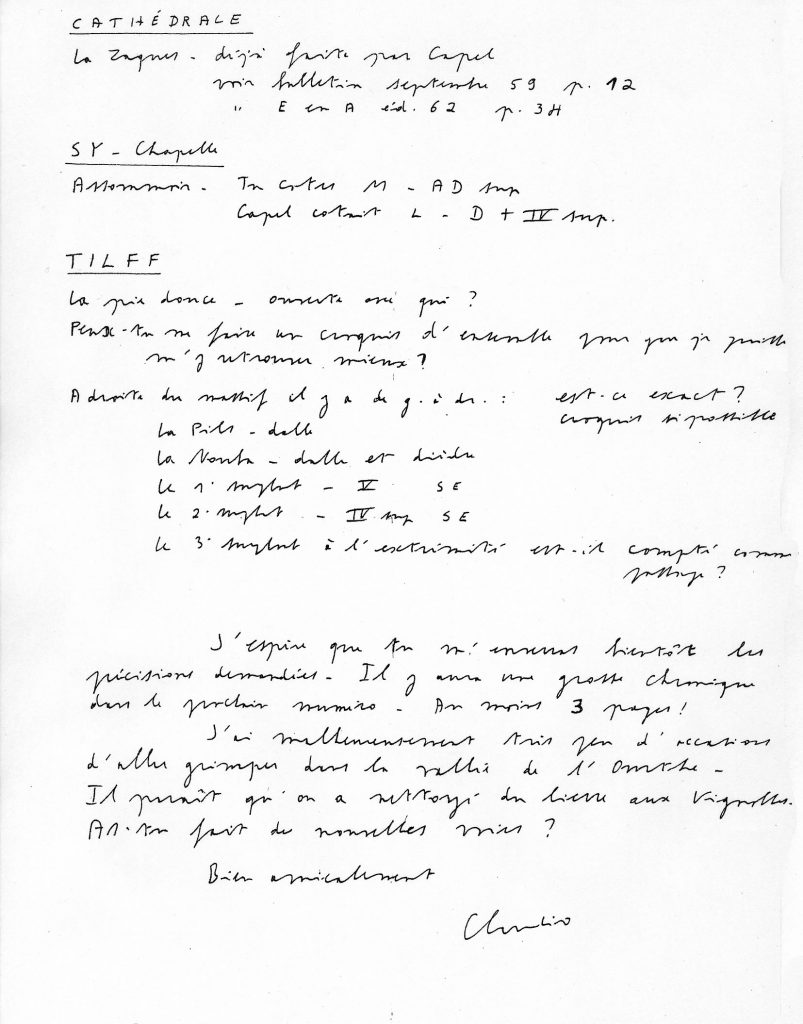 CATHÉDRALE
La Zaques - déjà faite par Capel
voir bulletin septembre 59 p. 12
" E en A éd. 62 p. 34
SY - Chapelle
Assommoir - Tu cotes M - AD sup
Capel cotait L - D + IV sup.
TILFF
La pie douce - ouverte avec qui ?
Peux-tu me faire un croquis d'ensemble pour que je puisse
m'y retrouver mieux ?
A droite du massif il y a de g. à dr. : est-ce exact ?
croquis si possible
La Pils - dalle
La Nouba - dalle et dièdre
Le 1° surplomb - V SE
Le 2° surplomb - IV sup SE
Le 3° surplomb à l'extrémité est-il compté comme
passage ?
J'espère que tu m'enverras bientôt les
précisions demandées. Il y aura une grosse chronique
dans le prochain numéro - Au moins 3 pages !
J'ai malheureusement très peu d'occasions
d'aller grimper dans la vallée de l'Ourthe -
Il paraît qu'on a nettoyé du lierre aux Vignobles.
As-tu fait de nouvelles voies ?
Bien amicalement
Claudio